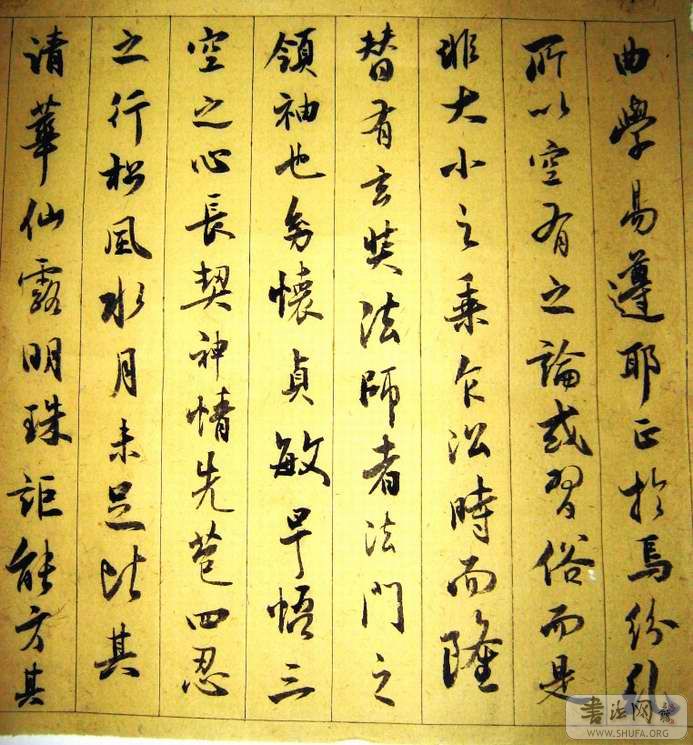 曲學易遵耶正於焉紛糺
所以空有之論或習俗而是
非大小之乘乍沿時而隆
替有玄奘法師者法門之
領袖也幼懷貞敏早悟三
空之心長契神情先苞四忍
之行松風水月未足比其
清華仙露明珠詎能方其
书法网
WWW.SHUFA.ORG